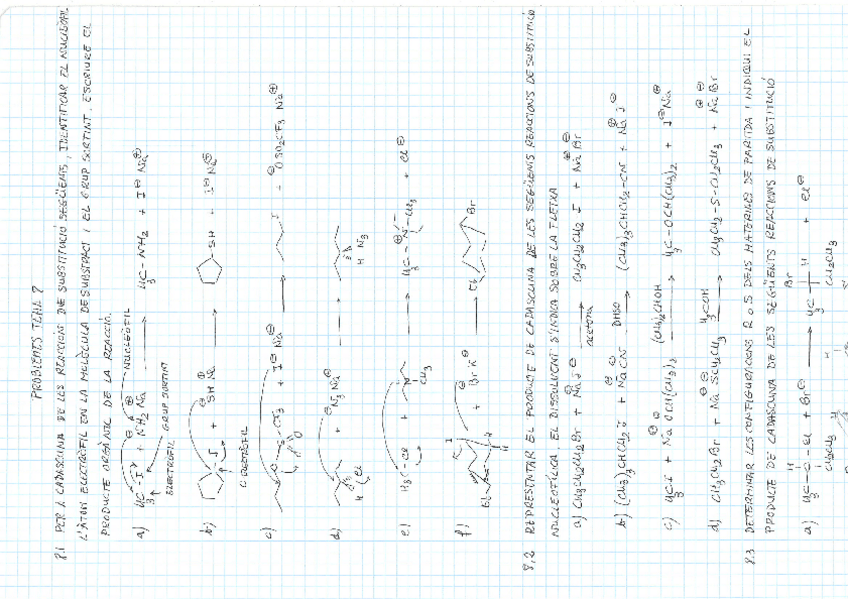 PROBLEMES TEMA 8
8.1 PER A CADASCUNA DE LES REACCIONS DE SUBSTITUCIÓ SEGÜENTS, IDENTIFICAR EL NUCLEÒFIL
L'ÀTOM ELECTRÒFIL EN LA MOLÈCULA DE SUBSTRACT I EL GRUP SORTINT. ESCRIURE EL
PRODUCTE ORGÀNIC DE LA REACCIÓ.
NUCLEÒFIL
a) H3C-I + NH2 Na → H3C-NH2 + I⊖ Na⊕
GRUP SORTINT
ELECTRÒFIL
b) I + SH Na → SH + I⊖ Na⊕
c) + I⊖ Na⊕ → I + ⊖OSO2CF3 Na⊕
d) H Cl + ⊖N3 Na⊕ → H N3
e) H3C-Cl + CH3 → H3C-N-CH3 + Cl⊖
f) I Et H + Br K⊕ → Et Br
8.2 REPRESENTAR EL PRODUCTE DE CADASCUNA DE LES SEGÜENTS REACCIONS DE SUBSTITUCIÓ
NUCLEOFÍLICA. EL DISSOLVENT S'INDICA SOBRE LA FLETXA
a) CH3CH2CH2Br + Na⊕ I⊖ → acetona CH3CH2CH2 I + Na⊕ Br⊖
b) (CH3)3CHCH2 I + Na⊕ CN⊖ DMSO → (CH3)3CHCH2-CN + Na⊕ I⊖
c) H3C-I + Na⊕ ⊖OCH(CH3)2 (CH3)2CHOH → H3C-OCH(CH3)2 + I⊖ Na⊕
d) CH3CH2Br + Na⊕ ⊖SCH2CH3 H3COH → CH3CH2-S-CH2CH3 + Na⊕ Br⊖
8.3 DETERMINAR LES CONFIGURACIONS R O S DELS MATERIALS DE PARTIDA I INDIQUI EL
PRODUCTE DE CADASCUNA DE LES SEGÜENTS REACCIONS DE SUBSTITUCIÓ
a) H3C-C-Cl + Br⊖ → H3C H + Cl⊖
H Br
CH2CH3 CH2CH3